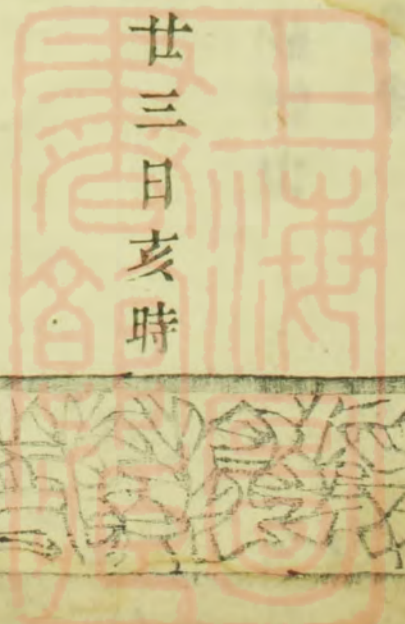 廿三日亥時
上海圖書館藏